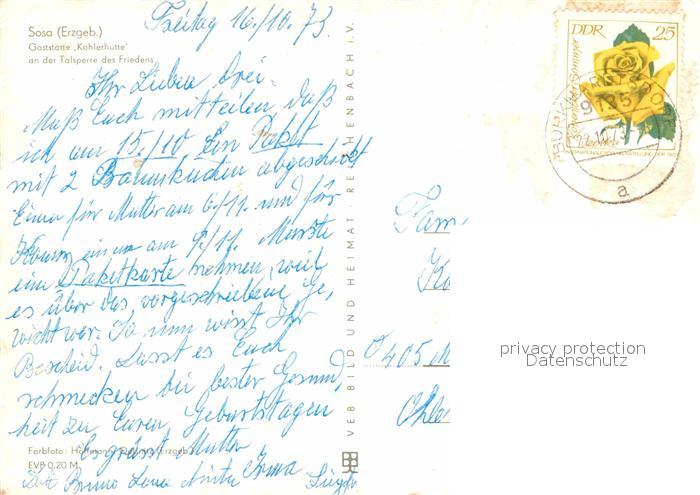 Sosa (Erzgeb.)
Gaststätte „Köhlerhütte"
an der Talsperre des Friedens
Freitag 16./10. 73.
Ihr Lieben drei.
Muß Euch mitteilen daß
ich am 15./10 Ein Paket
mit 2 Baumkuchen abgeschickt
Einen für Mutter am 6./11. und für
einen am 9./11. Musste
eine Paketkarte nehmen, weil
es über das vorgeschriebene Ge,
wicht war. So nun wisst Ihr
Bescheid. Lasst es Euch
schmecken bei bester Gesund,
heit zu Euren Geburtstagen
Es grüsst Mutter
Bruno Irma
Farbfoto: Hoffmann, (Erzgeb.)
EVP 0,20 M
VEB BILD UND HEIMAT REICHENBACH i. V.
DDR 25
a
Fam
O 405
privacy protection
Datenschutz